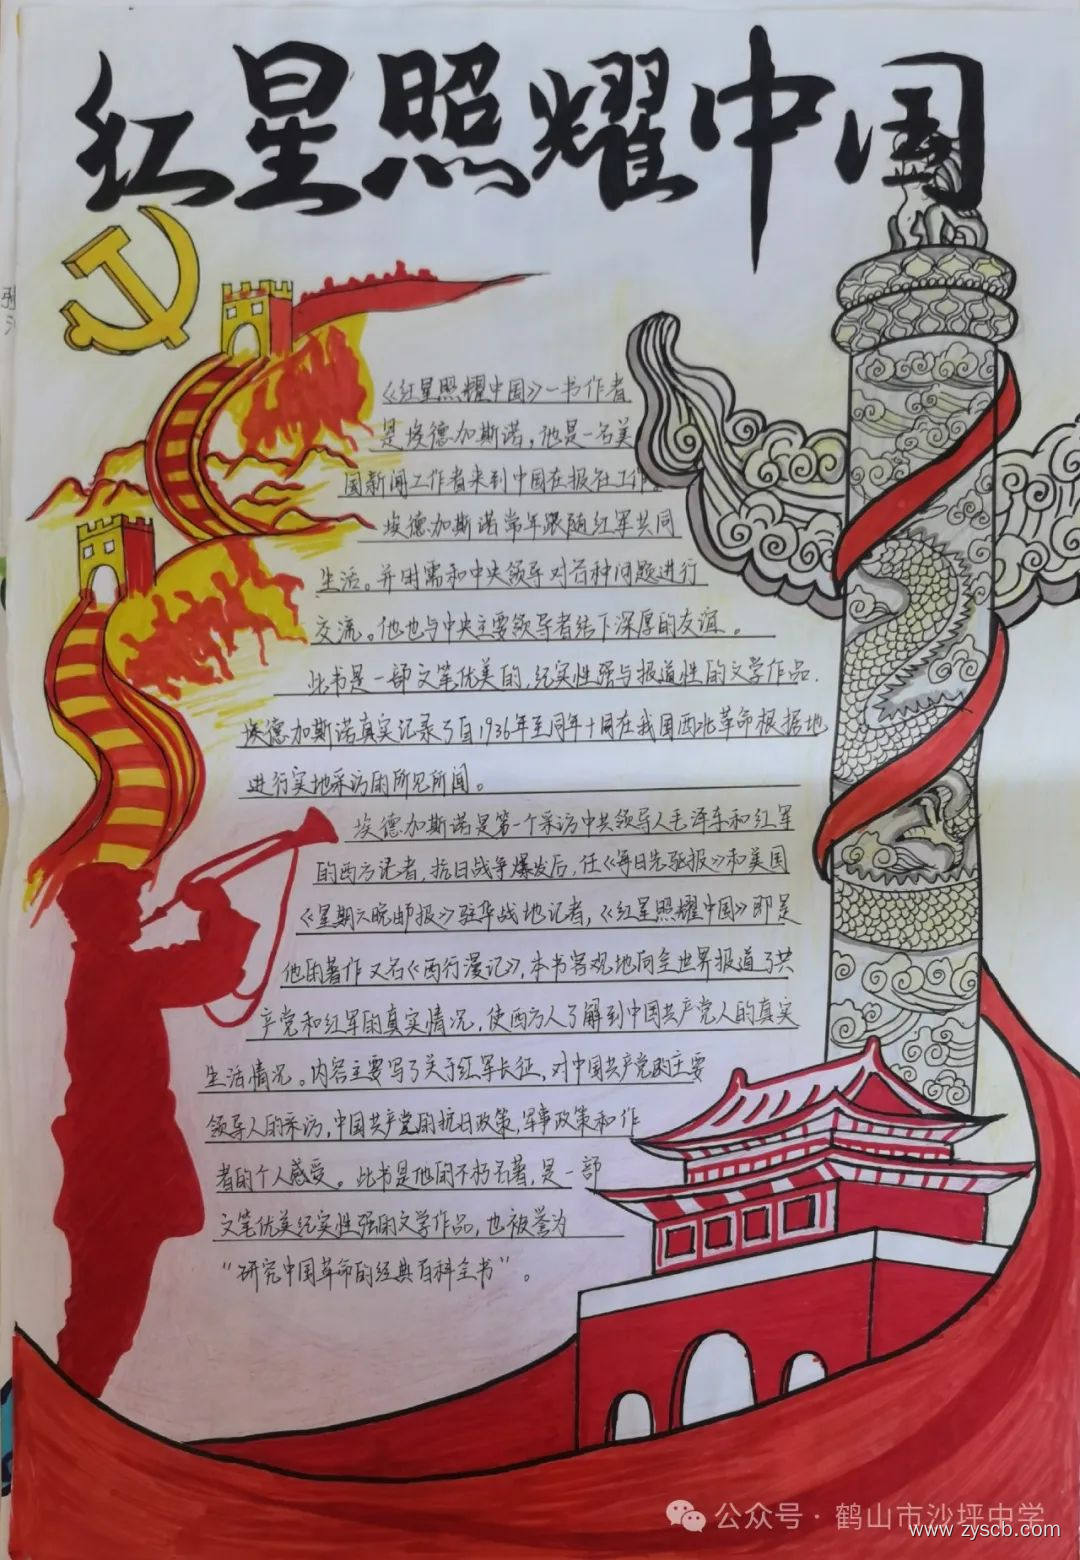 红星照耀中国
《红星照耀中国》一书作者
是埃德加斯诺，他是一名美
国新闻工作者来到中国在报社工作。
埃德加斯诺常年跟随红军共同
生活。并时需和中央领导对各种问题进行
交流。他也与中央主要领导者结下深厚的友谊。
此书是一部文笔优美的，纪实性强与报道性的文学作品.
埃德加斯诺真实记录了自1936年至同年十月在我国西北革命根据地
进行实地采访的所见所闻。
埃德加斯诺是第一个采访中共领导人毛泽东和红军
的西方记者，抗日战争爆发后，任《每日先驱报》和美国
《星期六晚邮报》驻华战地记者，《红星照耀中国》即是
他的著作又名《西行漫记》，本书客观地向全世界报道了共
产党和红军的真实情况，使西方人了解到中国共产党人的真实
生活情况。内容主要写了关于红军长征，对中国共产党的主要
领导人的采访，中国共产党的抗日政策，军事政策和作
者的个人感受。此书是他的不朽名著，是一部
文笔优美纪实性强的文学作品，也被誉为
“研究中国革命的经典百科全书”。
公众号·鹤山市沙坪中学
www.zyscb.com